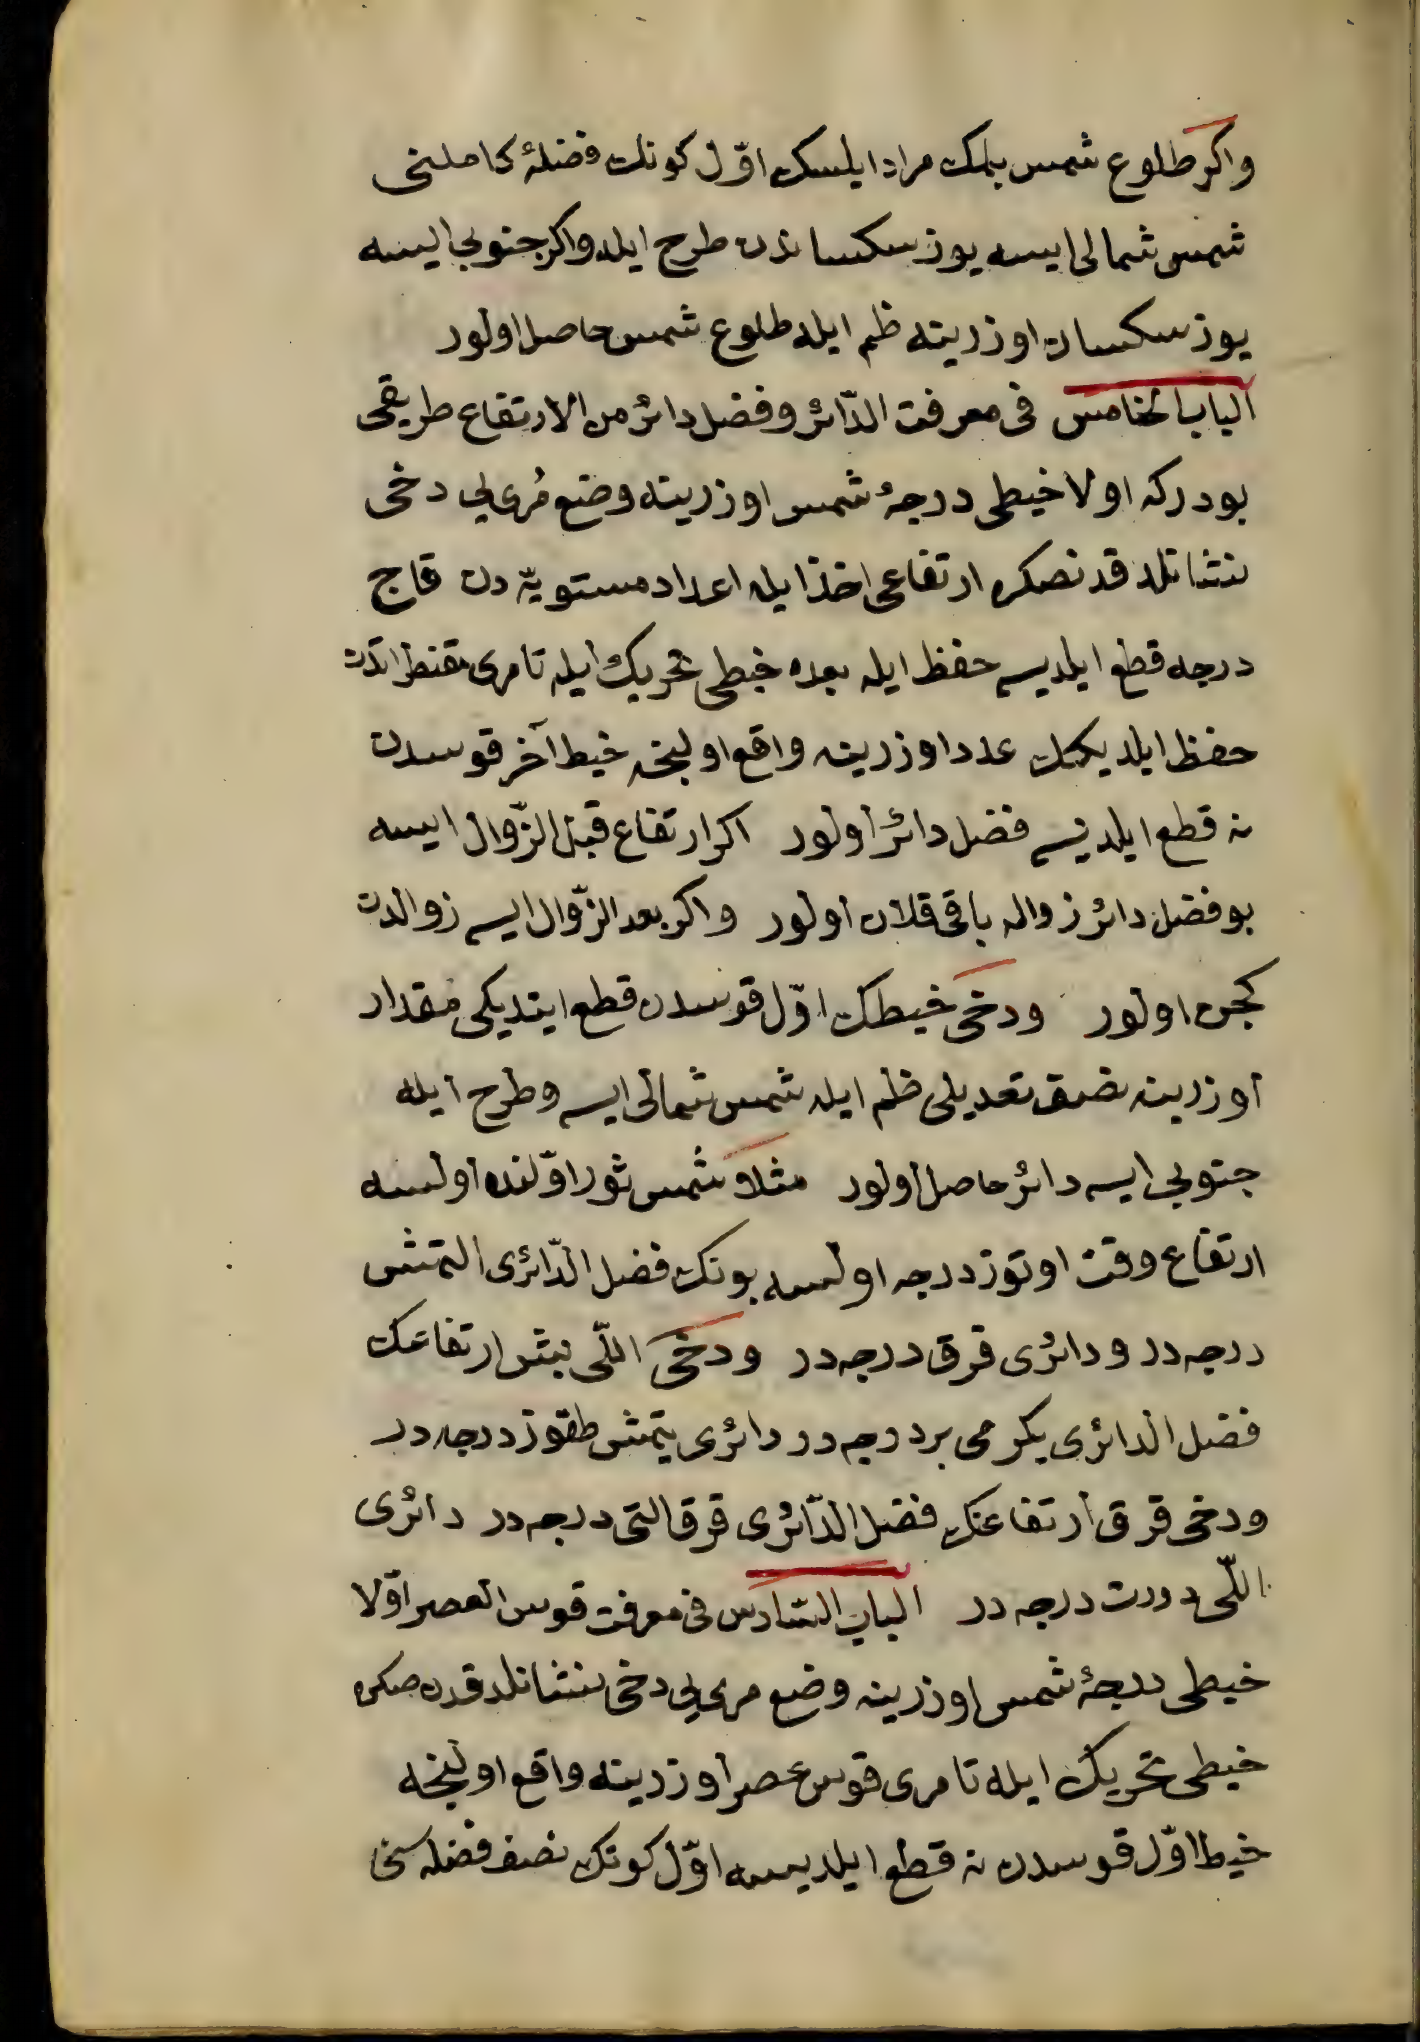 واكر طلوع شمس بلمك مراد ايلسك اوّل كونك فضلۀ كاملنی
شمس شمالی ايسه يوز سكساندن طرح ايله واكر جنوبی ايسه
يوز سكسان اوزرينه ظم ايله طلوع شمس حاصل اولور
الباب الخامس فی معرفت الدّائر و فضل دائر من الارتفاع طريقی
بودركه اولا خيطی درجۀ شمس اوزرينه وضع مُری يی دخی
نشانلدقدنصكره ارتفاعی اخذ ايله اعداد مستويّه دن قاج
درجه قطع ايلديسه حفظ ايله بعده خيطی تحريك ايله تا مری مقنطراتدن
حفظ ايلديكك عدد اوزرينه واقع اولنجه خيط آخر قوسدن
نه قطع ايلديسه فضل دائر اولور اكر ارتفاع قبل الزّوال ايسه
بو فضل دائر زواله باقی قلان اولور واكر بعد الزّوال ايسه زوالدن
كچن اولور ودخی خيطك اوّل قوسدن قطع ايتديكی مقدار
اوزرينه نصف تعديلی ظم ايله شمس شمالی ايسه وطرح ايله
جنوبی ايسه دائر حاصل اولور مثلا شمس ثور اوّلنده اولسه
ارتفاع وقت اوتوز درجه اولسه بونك فضل الدّائری التمش
درجه در ودائری قرق درجه در ودخی اللّی بش ارتفاعك
فضل الدائری يكرمی بر درجه در دائری يتمش طقوز درجه در
ودخی قرق ارتفاعك فضل الدّائری قرق التی درجه در دائری
اللّی دورت درجه در الباب السّادس فی معرفت قوس العصر اوّلا
خيطی درجۀ شمس اوزرينه وضع مری يی دخی نشانلدقدن صكره
خيطی تحريك ايله تا مری قوس عصر اوزرينه واقع اولنجه
خيط اوّل قوسدن نه قطع ايلديسه اوّل كونك نصف فضله سنی